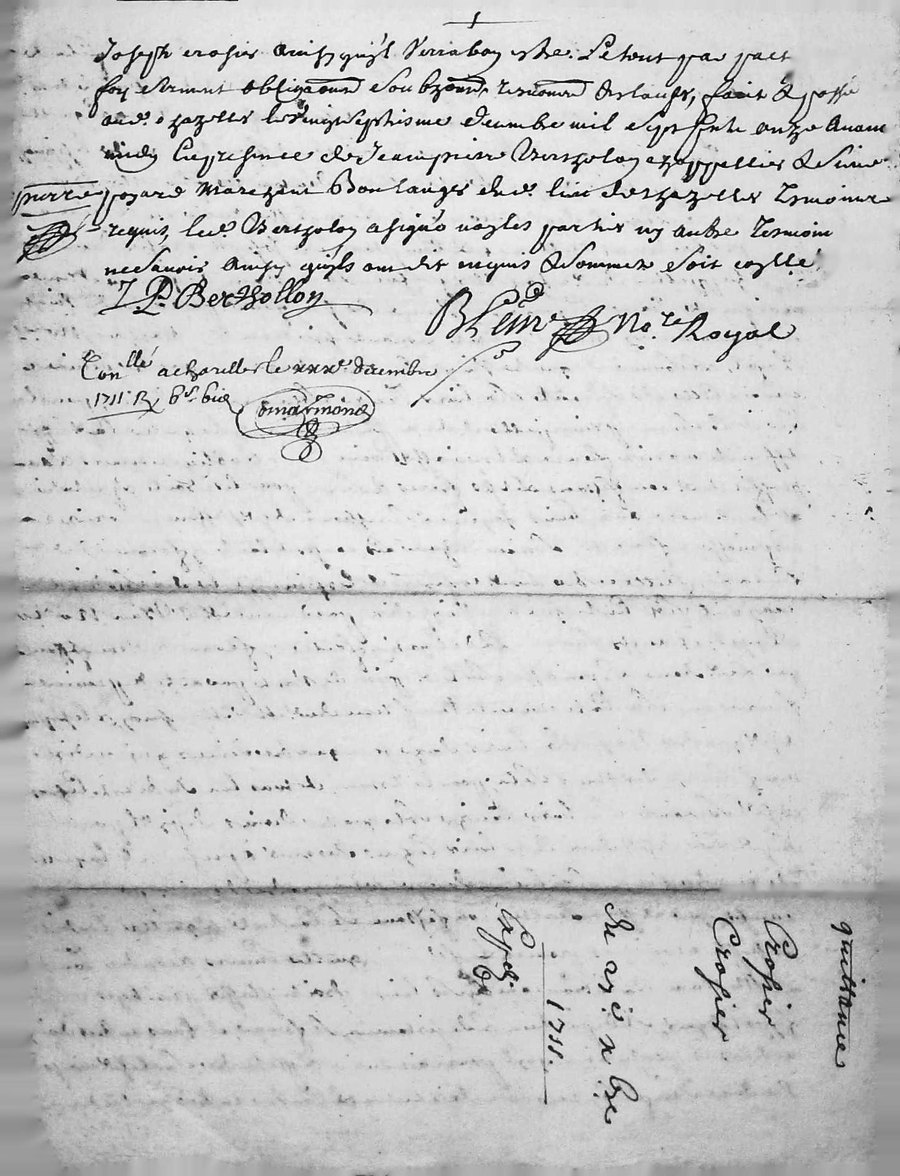 Joseph crosier Ainsy quil Verra bon estre. Le tout par pact
foy serment obligaōns soubzōns renonons & clauses, fait & passé
aud. chazelles le vingt septiesme decembre mil sept sents onze Avant
midy En presence de Jean pierre Bertholon chappellier & sieur
pierre
Marchant Boulanger dud. lieu de chazelles Tesmoins
requis, led. Bertholon a signé non les parties ny autre Tesmoin
ne savoir Ainsy quils ont dit enquis & sommés soit conllé
J P. Berthollon
No.re Royal
Conllé a chazelles le xxxe. decembre
1711 R
quittance
Crosier
Crosier
Du 27e xbre
1711.
Exped.